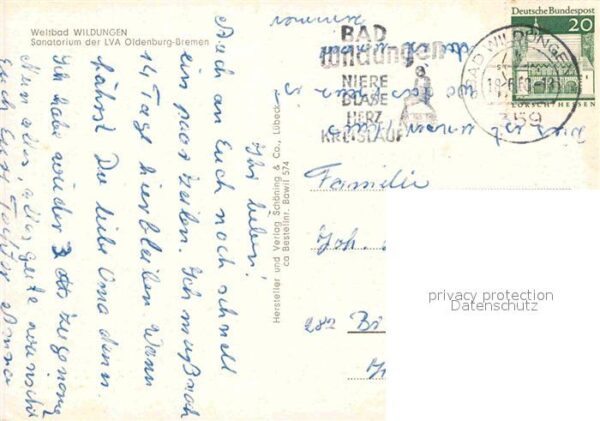 Weltbad WILDUNGEN
Sanatorium der LVA Oldenburg-Bremen
Ihr lieben!
Auch an Euch noch schnell
ein paar Zeilen. Ich muß noch
14 Tage hierbleiben. Wann
fährst Du liebe Oma denn.
Ich habe wieder 3 zugenom
Nun alles, alles gute wünscht
Euch Eure Tochter Anna
Dies ist unser
wo
Hersteller und Verlag Schöning & Co., Lübeck
ca Bestellnr. Bawil 574
BAD
Wildungen
NIERE
BLASE
HERZ
KREISLAUF
BAD WILDUNGEN
359
Deutsche Bundespost
20
LORSCH/HESSEN
Familie
Joh.
282 B
privacy protection
Datenschutz